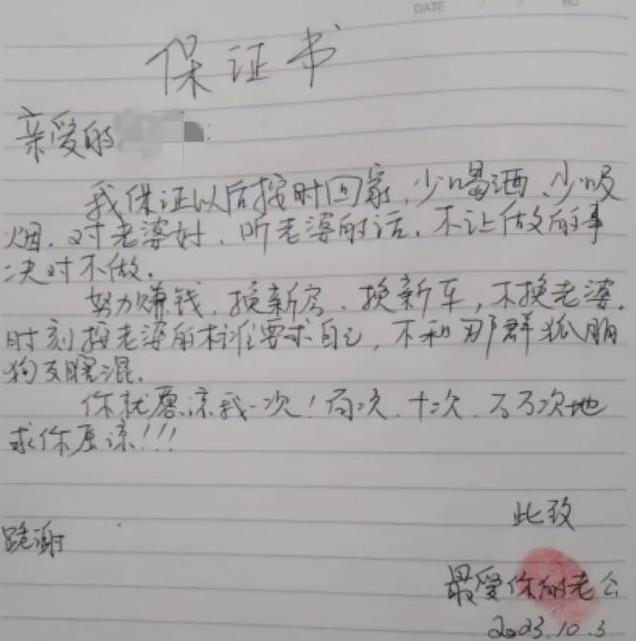 DATE / / NO
保证书
亲爱的:
我保证以后按时回家,少喝酒、少吸
烟。对老婆好、听老婆的话。不让做的事
决对不做。
努力赚钱,换新房、换新车,不换老婆。
时刻按老婆的标准要求自己,不和那群狐朋
狗友瞎混。
你就原谅我一次!百次、千次、万万次地
求你原谅!!!
此致
跪谢
最爱你的老公
2023.10.3